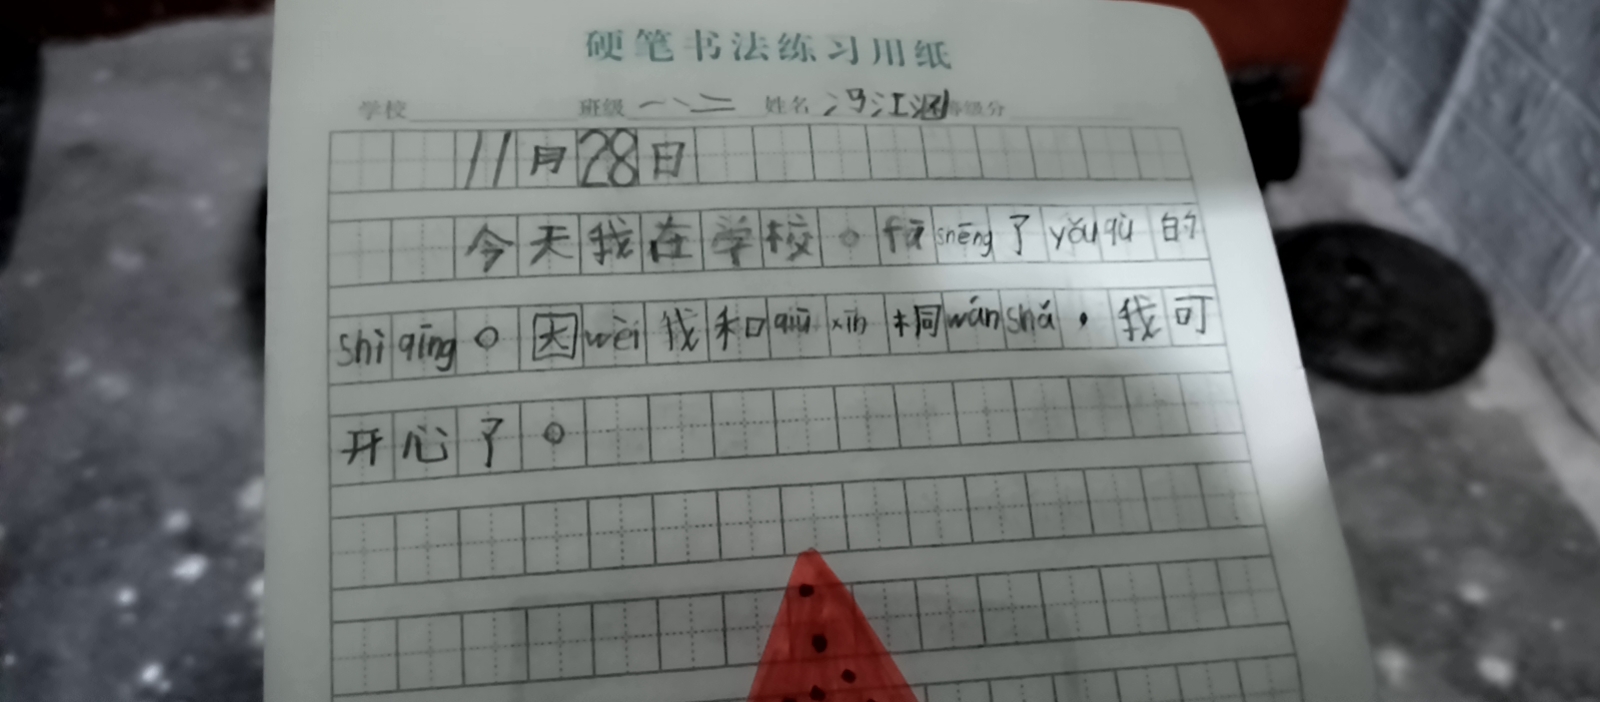 硬笔书法练习用纸
学校 班级 一、二 姓名 冯江涵 等级分
11月28日
今天我在学校。fā shēng了yǒu qù的
shì qing。因wèi我和qiū xīn 相同wán shǎ，我可
开心了。